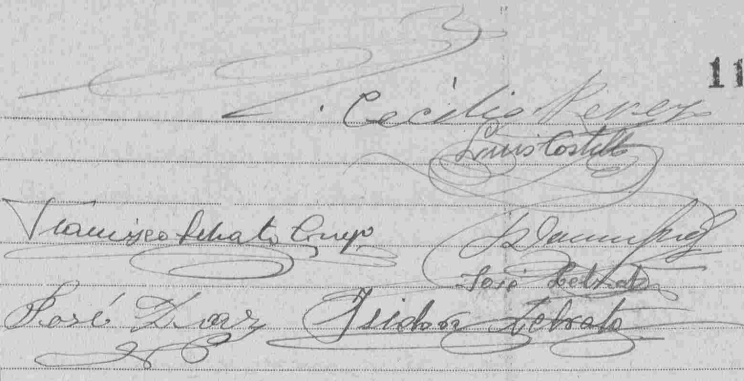 11
Cecilio Perez
Luis Costillo
Francisco Lebrato
José Lebrato
José Diaz Isidoro Lebrato